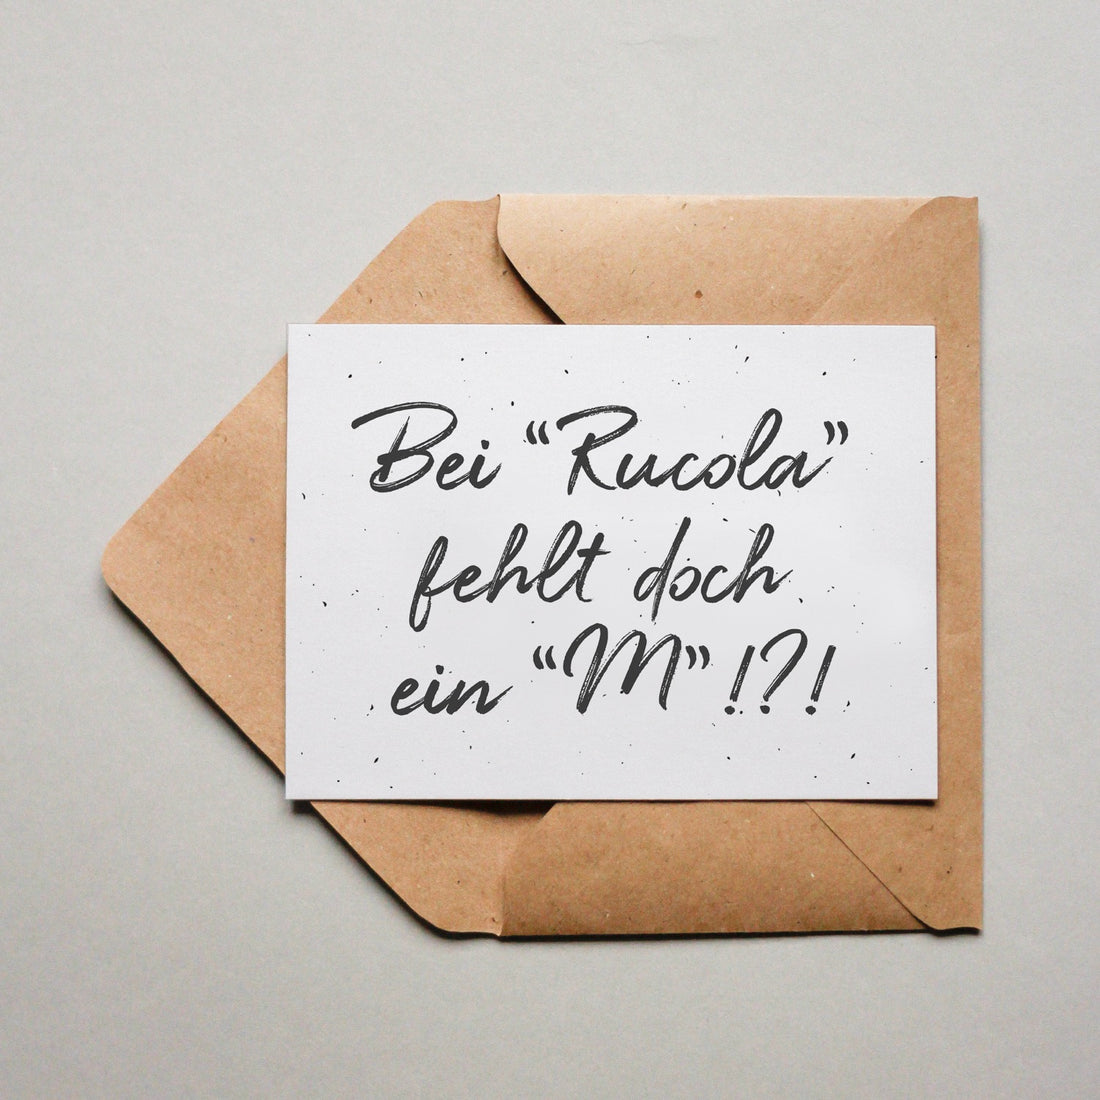 Bei “Rucola”
fehlt doch
ein “M”!?!